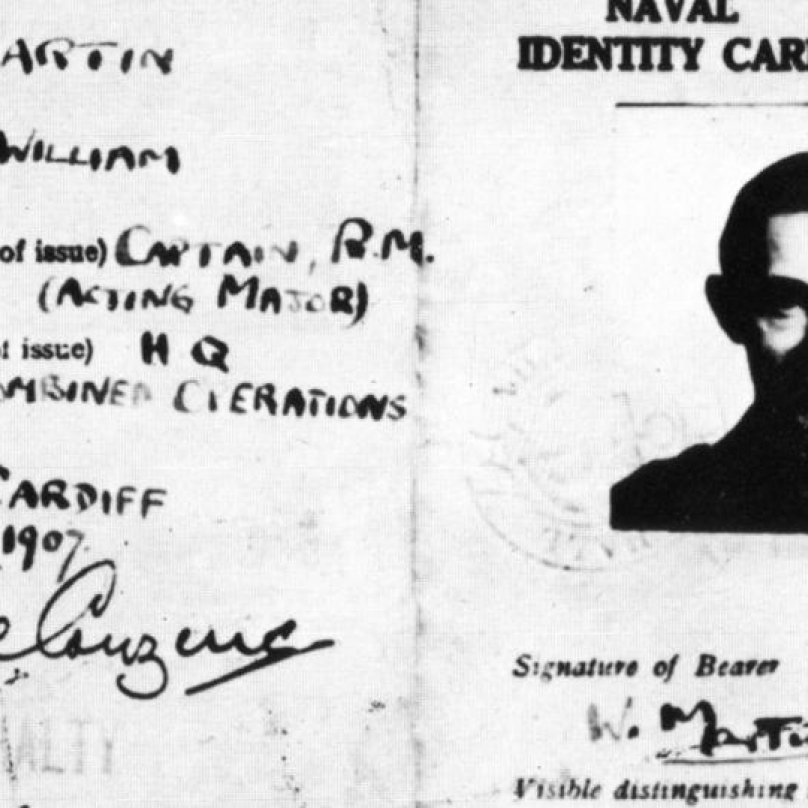 ARTIN
WILLIAM
of issue) CAPTAIN, R.M.
(ACTING MAJOR)
of issue) H Q
OMBINED OPERATIONS
CARDIFF
1907
NAVAL
IDENTITY CAR
Signature of Bearer
W. Marti
Visible distinguishing
ALTY